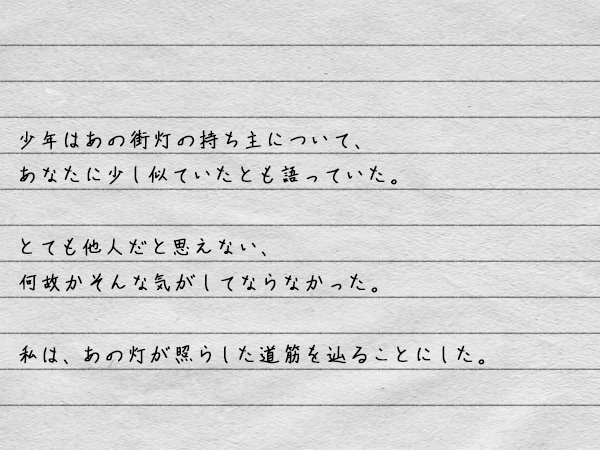 少年はあの街灯の持ち主について、
あなたに少し似ていたとも語っていた。
とても他人だと思えない、
何故かそんな気がしてならなかった。
私は、あの灯が照らした道筋を辿ることにした。